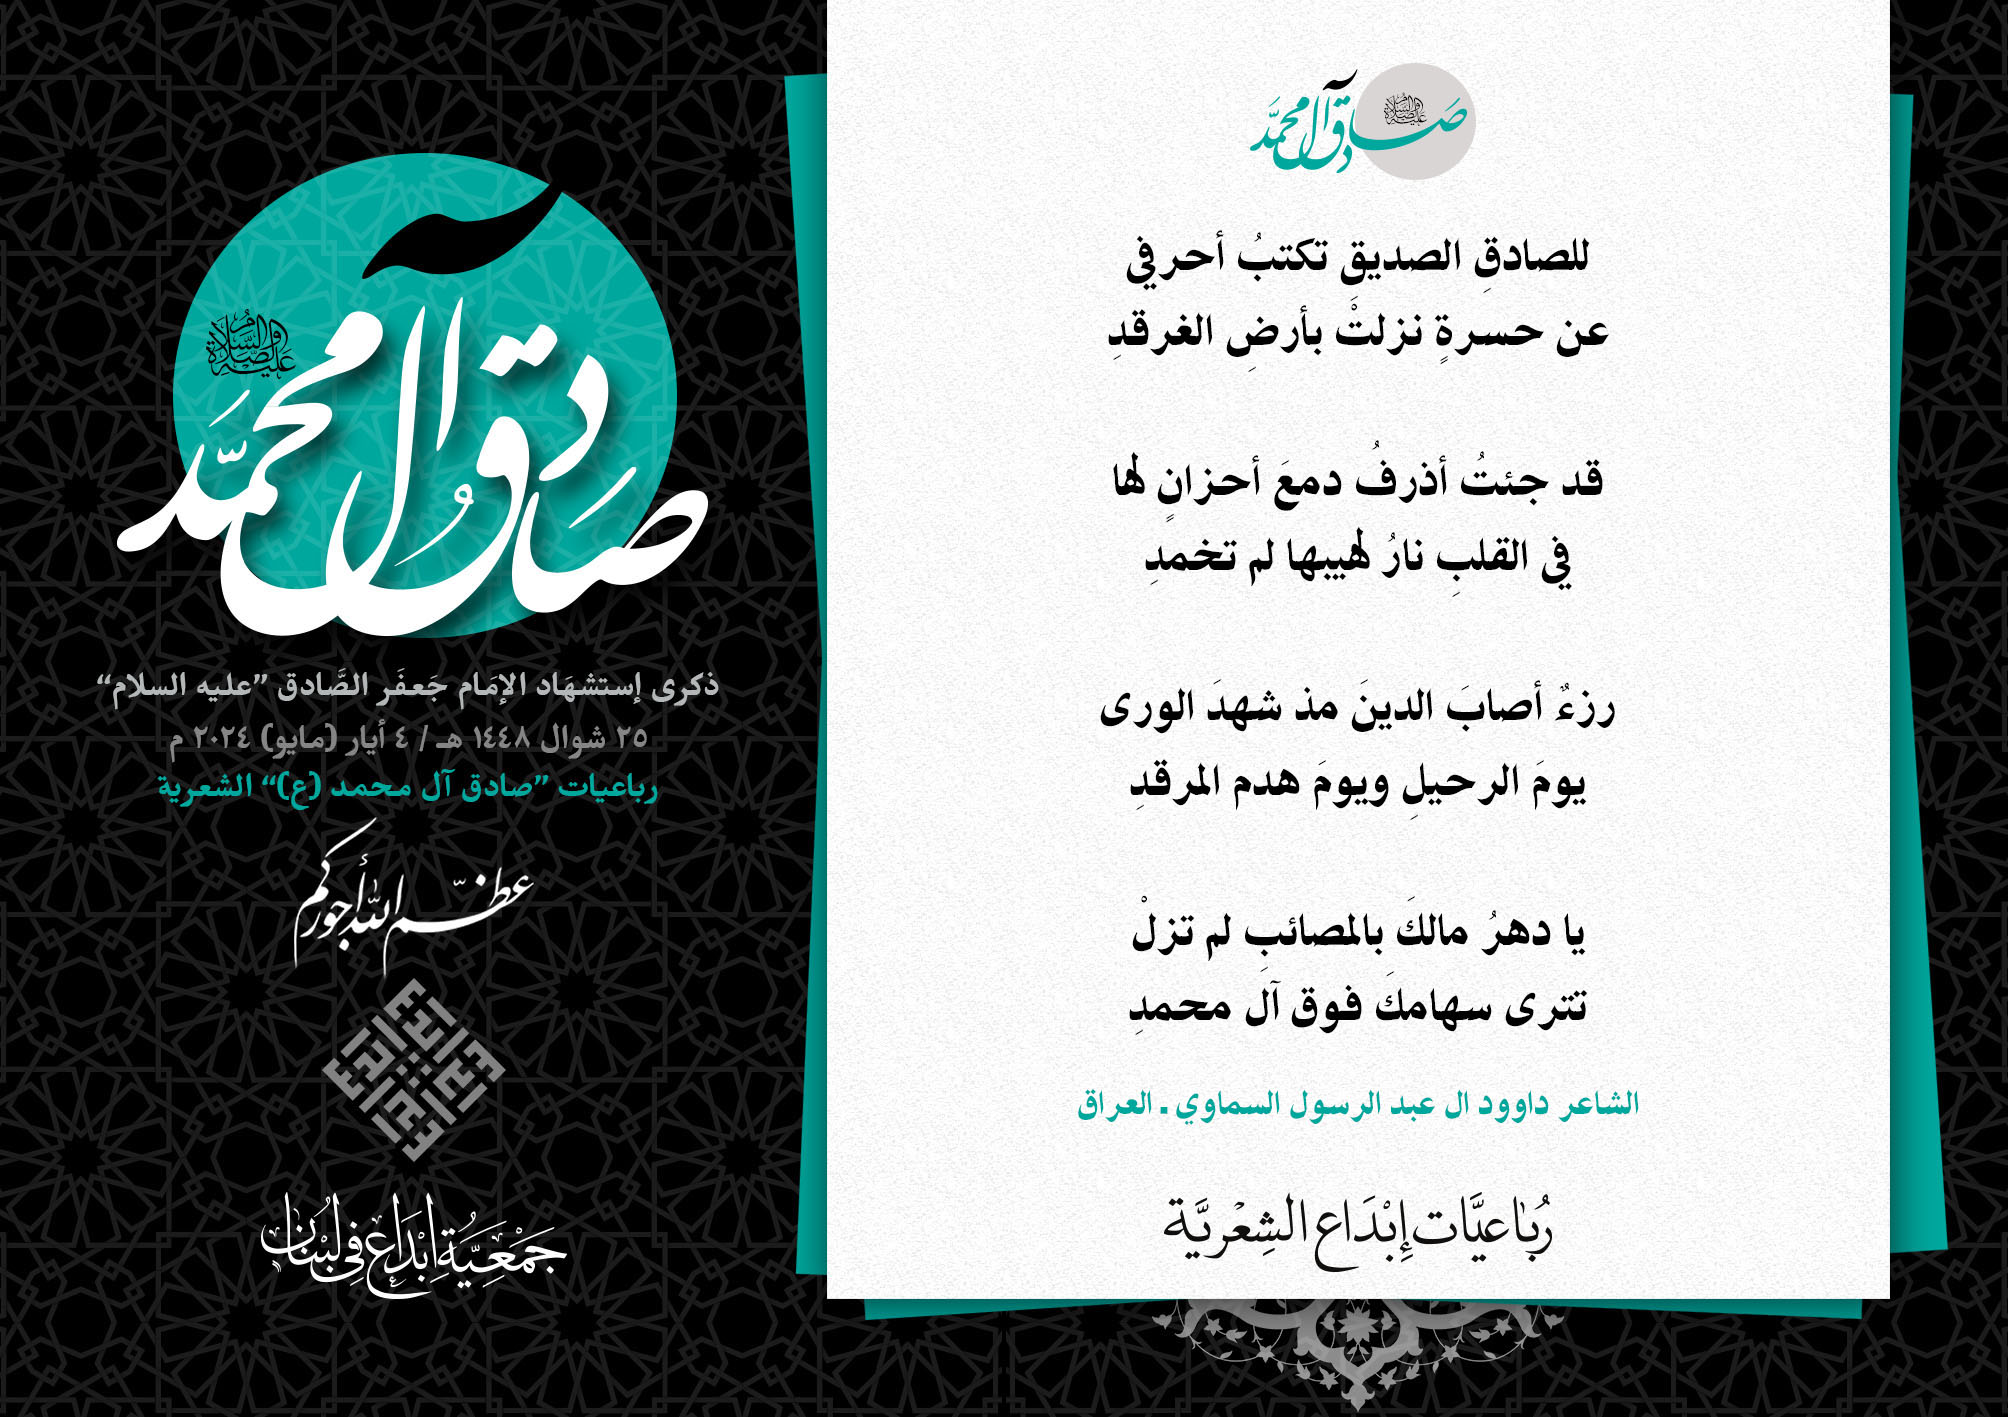 صادق آل محمد
عليه الصلاة والسلام
ذكرى إستشهَاد الإمَام جَعفَر الصَّادق ”عليه السلام“
٢٥ شوال ١٤٤٨ هـ / ٤ أيار (مايو) ٢٠٢٤ م
رباعيات ”صادق آل محمد (ع)“ الشعرية
عظّم الله أجوركم
إبداع
جَمْعِيَّةُ إِبْدَاع فِي لُبْنَان
صادق آل محمد
عليه الصلاة والسلام
للصادقِ الصديق تكتبُ أحرفي
عن حسرةٍ نزلتْ بأرضِ الغرقدِ
قد جئتُ أذرفُ دمعَ أحزانٍ لها
في القلبِ نارُ لهيبها لم تخمدِ
رزءٌ أصابَ الدينَ مذ شهدَ الورى
يومَ الرحيلِ ويومَ هدم المرقدِ
يا دهرُ مالكَ بالمصائبِ لم تزلْ
تترى سهامكَ فوق آل محمدِ
الشاعر داوود ال عبد الرسول السماوي ـ العراق
رُبَاعيَّات إِبْدَاع الشِعْريَّة